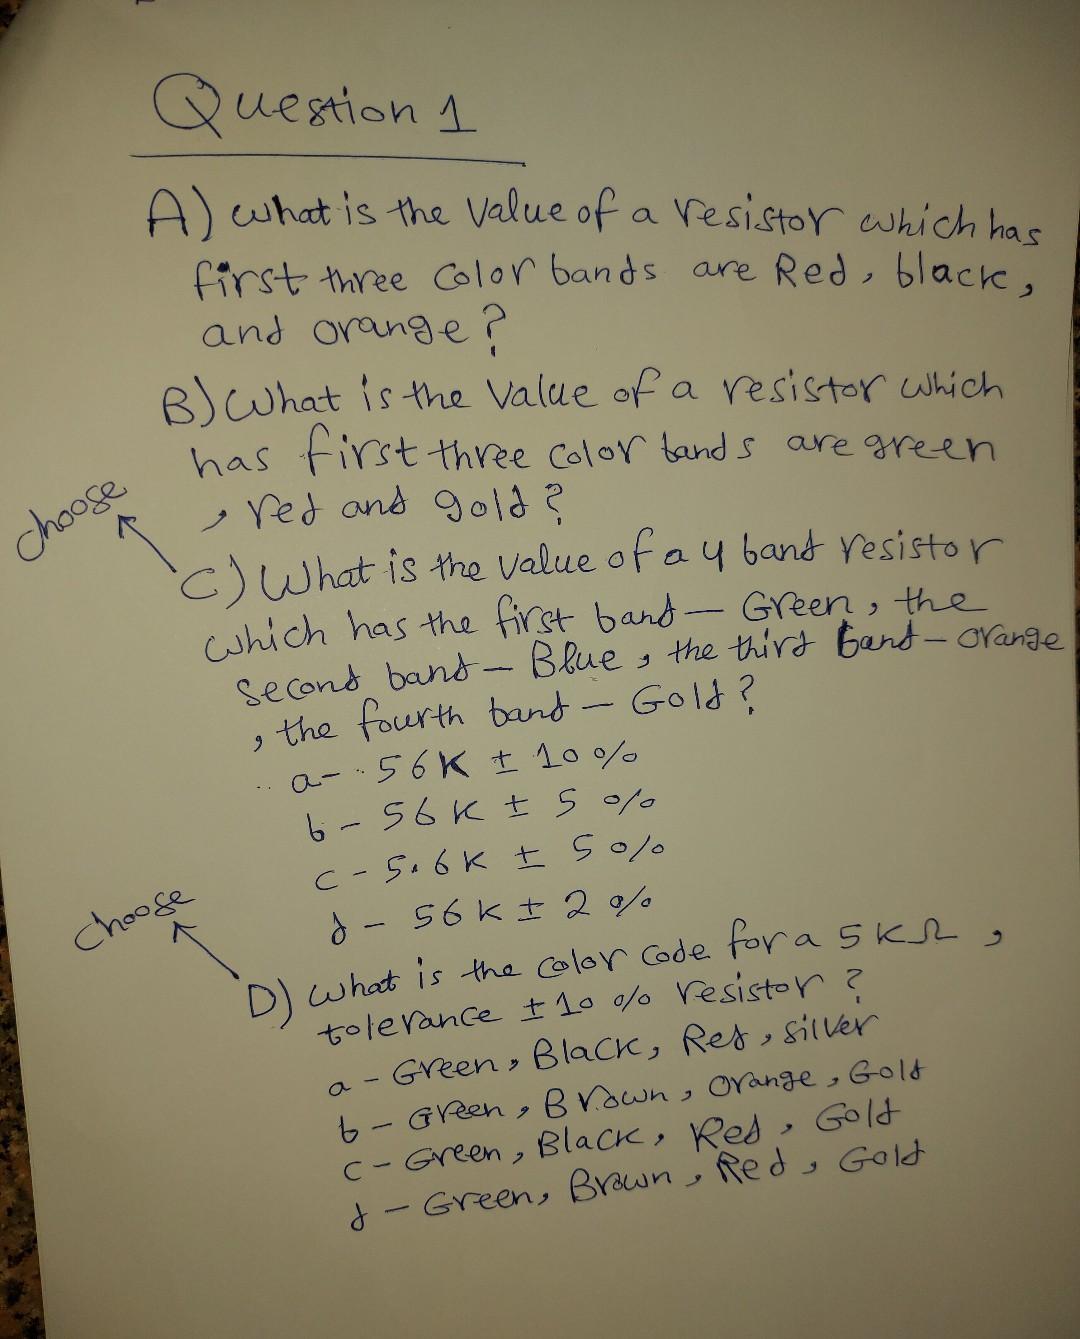 Question 1
A) what is the value of a resistor which has
first three color bands are Red, black,
and orange?
B) What is the value of a resistor which
has first three color bands are green
, red and gold?
choose
C) What is the value of a 4 band resistor
which has the first band - Green, the
second band - Blue, the third band - orange
, the fourth band - Gold?
a- 56K ± 10 %
b - 56 K ± 5 %
c - 5.6 K ± 5 %
d - 56 K ± 2 %
choose
D) what is the color code for a 5 KΩ,
tolerance ± 10 % resistor?
a - Green, Black, Red, silver
b - Green, Brown, Orange, Gold
c - Green, Black, Red, Gold
d - Green, Brown, Red, Gold